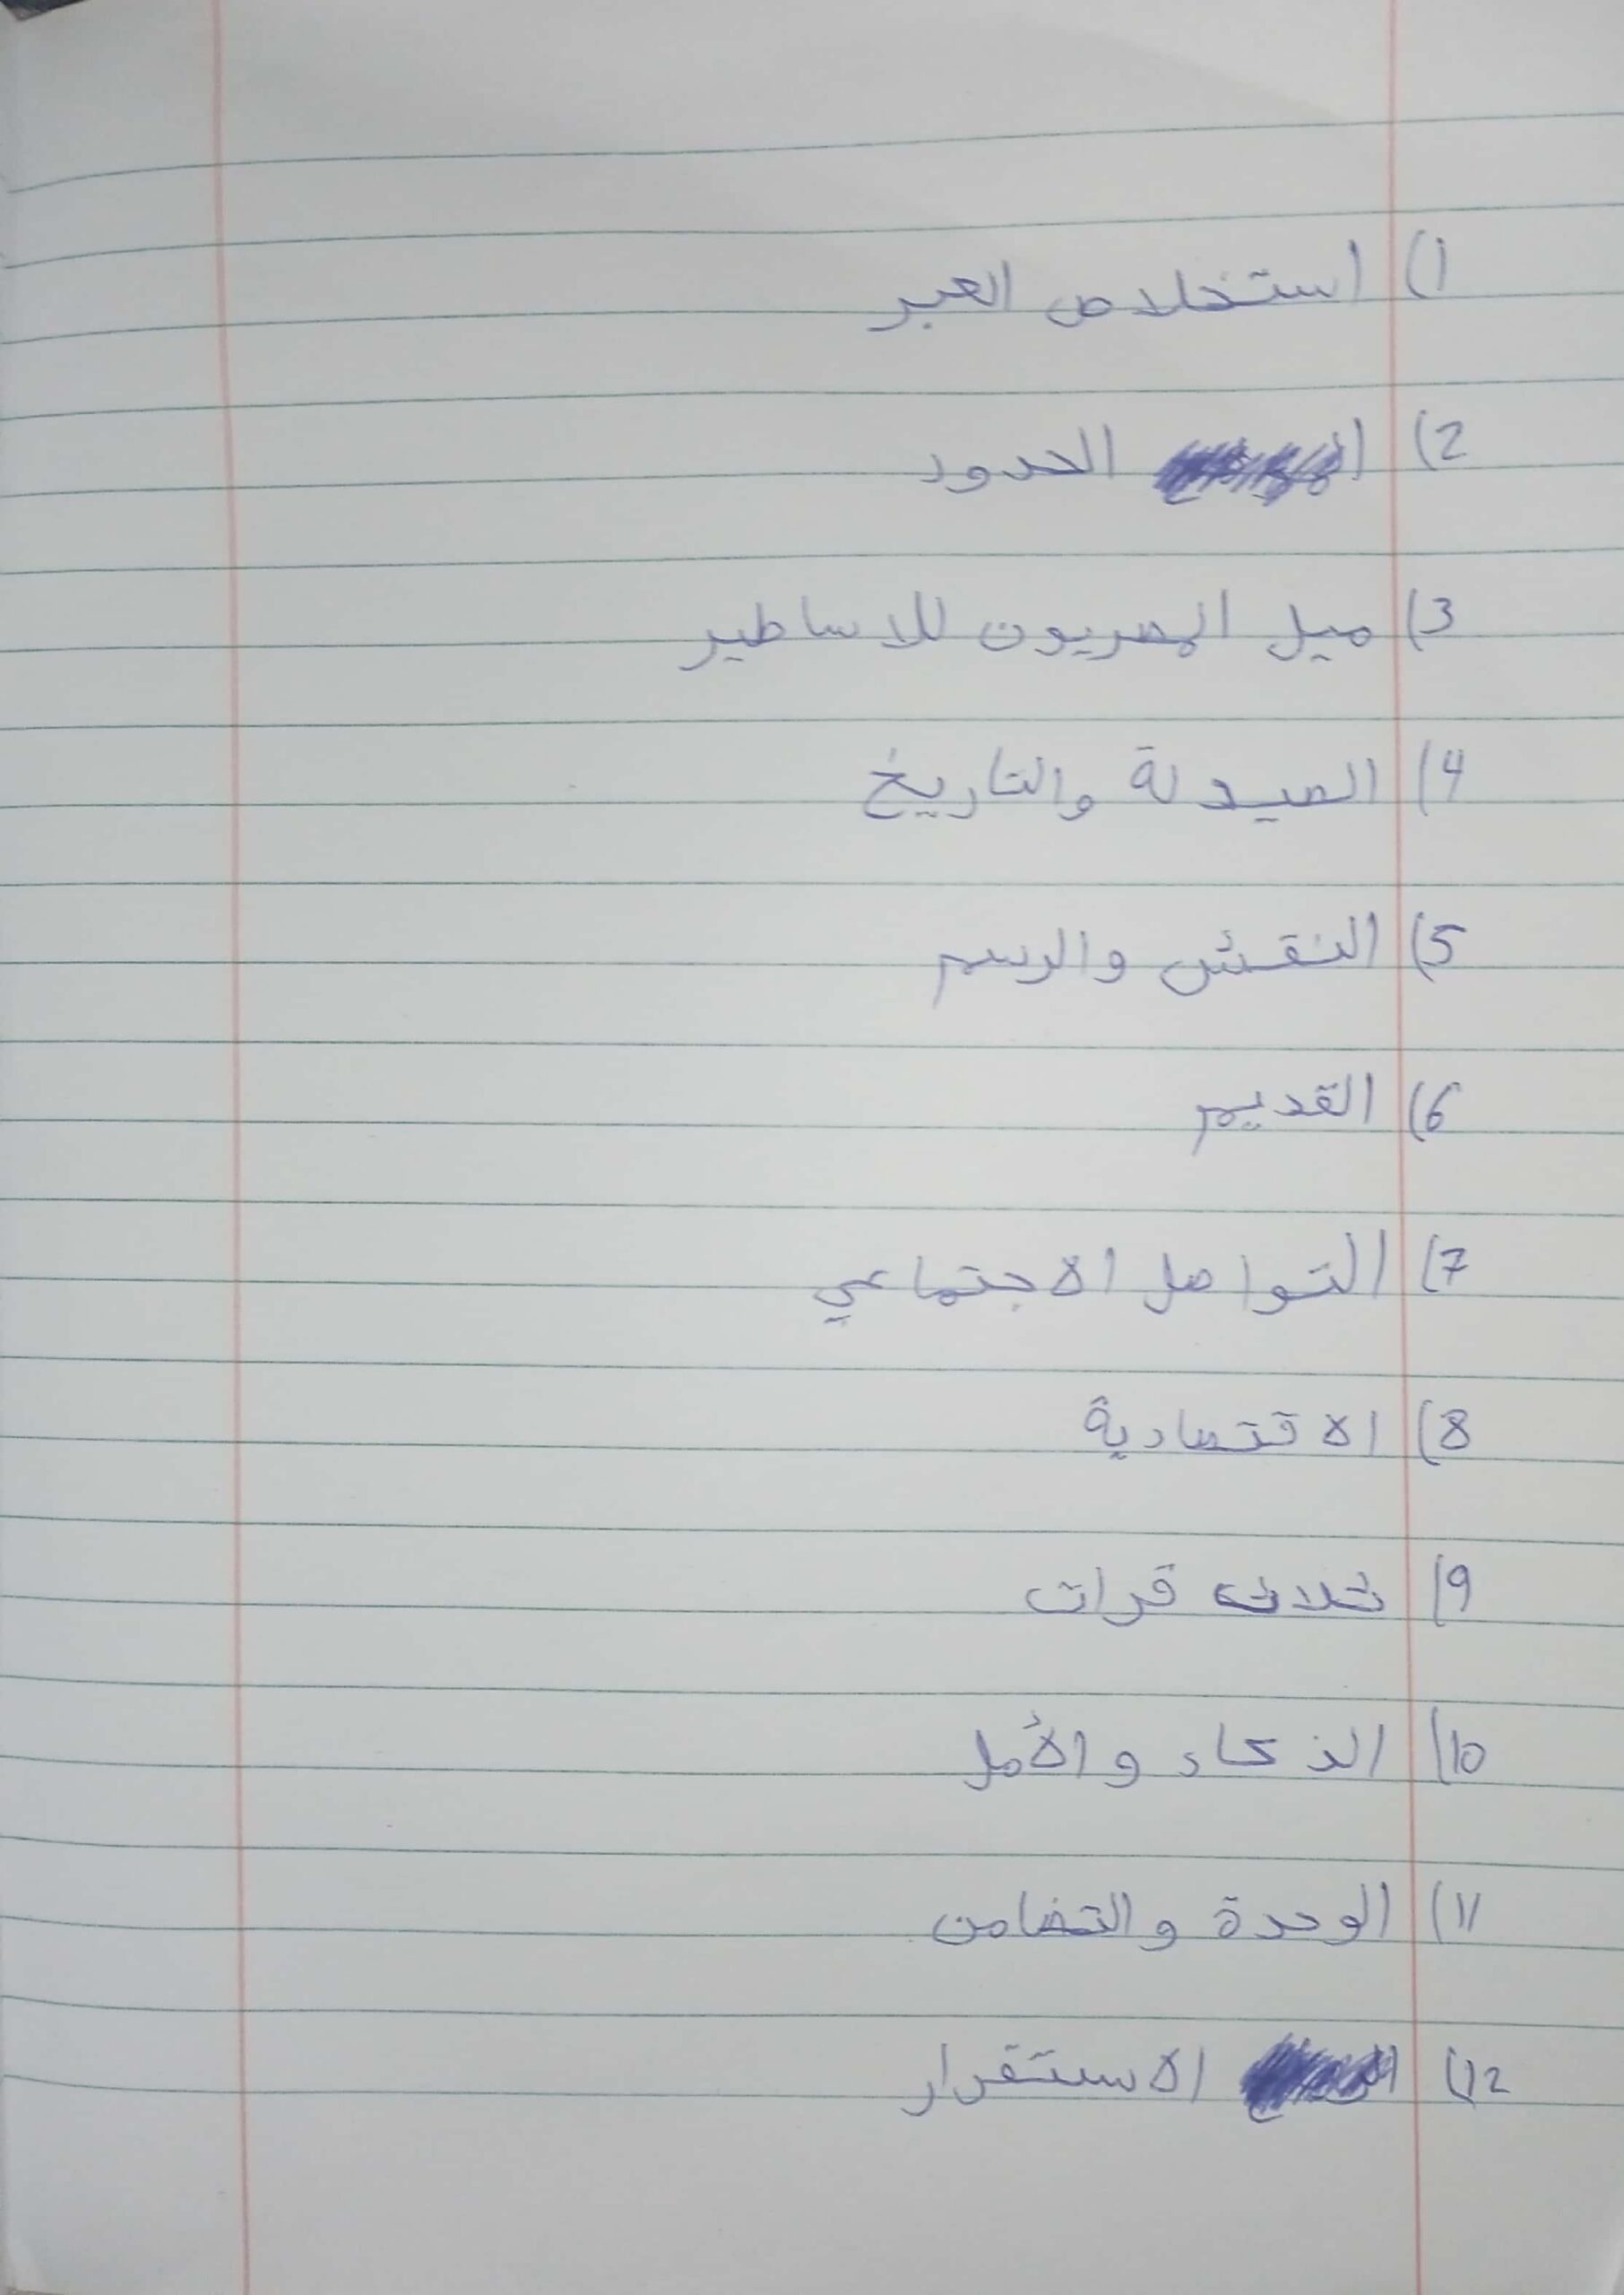 1) استخلاص العبر
2) الحدود
3) ميل المصريون للاساطير
4) الصيدلة والتاريخ
5) النقش والرسم
6) القديم
7) التواصل الاجتماعي
8) الاقتصادية
9) ثلاث قرات
10) الذكاء والأمل
11) الوحدة والتضامن
12) الاستقرار